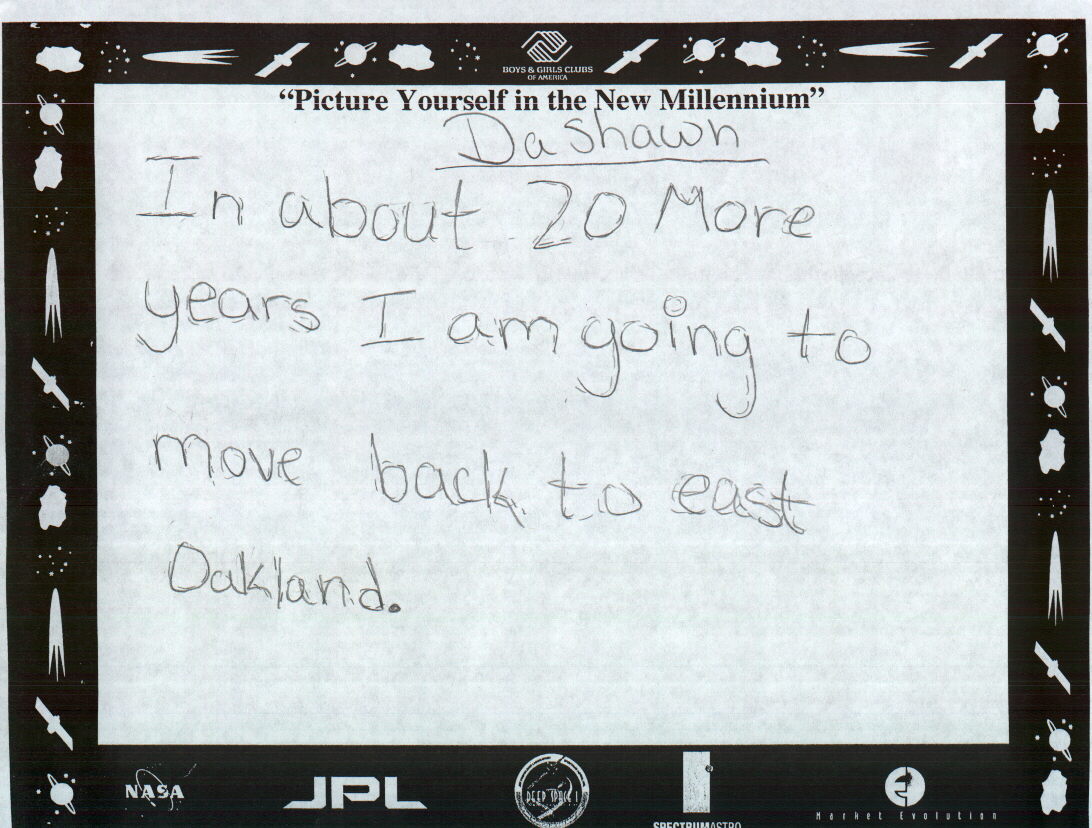 BOYS & GIRLS CLUBS
OF AMERICA
“Picture Yourself in the New Millennium”
Dashawn
In about 20 More
years I am going to
move back to east
Oakland.
NASA
JPL
DEEP SPACE 1
SPECTRUMASTRO
Market Evolution